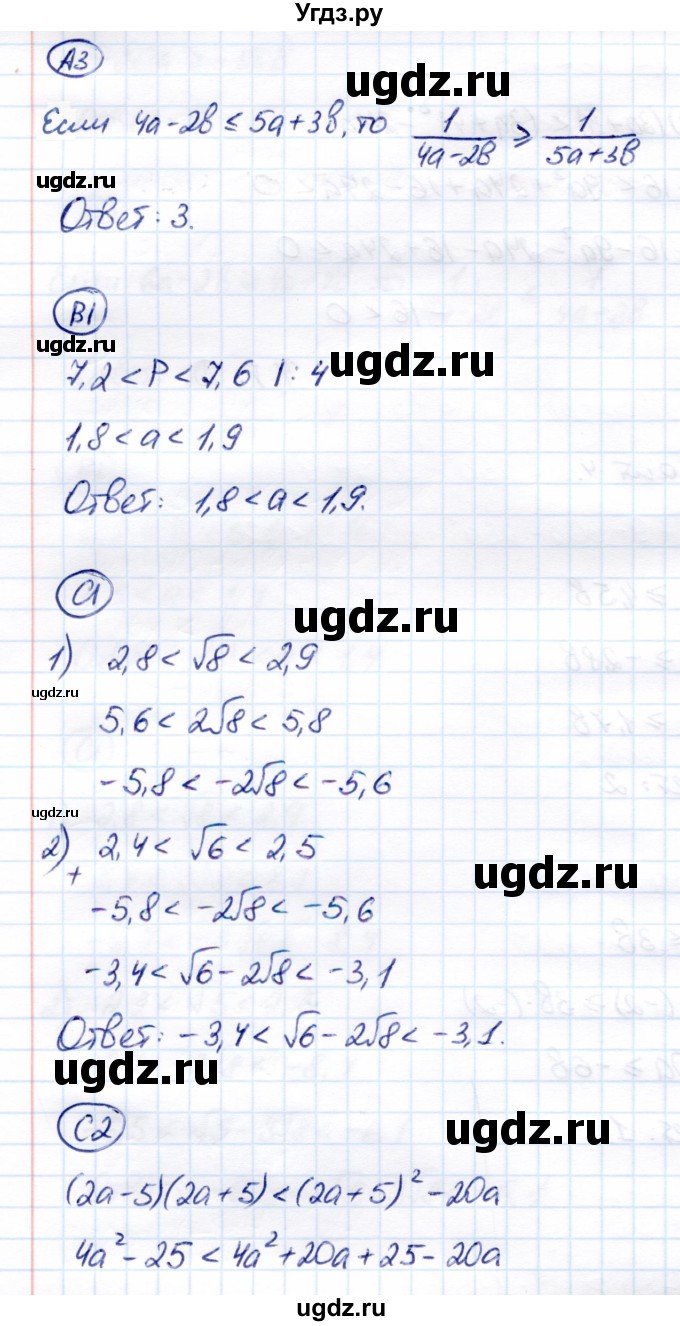 Угдз.ру
А3
ugdz.ru
Если 4a-2b ≤ 5a+3b, то 1/(4a-2b) ≥ 1/(5a+3b)
ugdz.ru
Ответ: 3.
В1
ugdz.ru
7,2 < P < 7,6 | : 4
ugdz.ru
1,8 < a < 1,9
Ответ: 1,8 < a < 1,9.
С1
ugdz.ru
1) 2,8 < √8 < 2,9
ugdz.ru
5,6 < 2√8 < 5,8
-5,8 < -2√8 < -5,6
ugdz.ru
2) 2,4 < √6 < 2,5
+
ugdz.ru
-5,8 < -2√8 < -5,6
-3,4 < √6 - 2√8 < -3,1
Ответ: -3,4 < √6 - 2√8 < -3,1.
ugdz.ru
С2
ugdz.ru
(2a-5)(2a+5) < (2a+5)² - 20a
4a² - 25 < 4a² + 20a + 25 - 20a
ugdz.ru